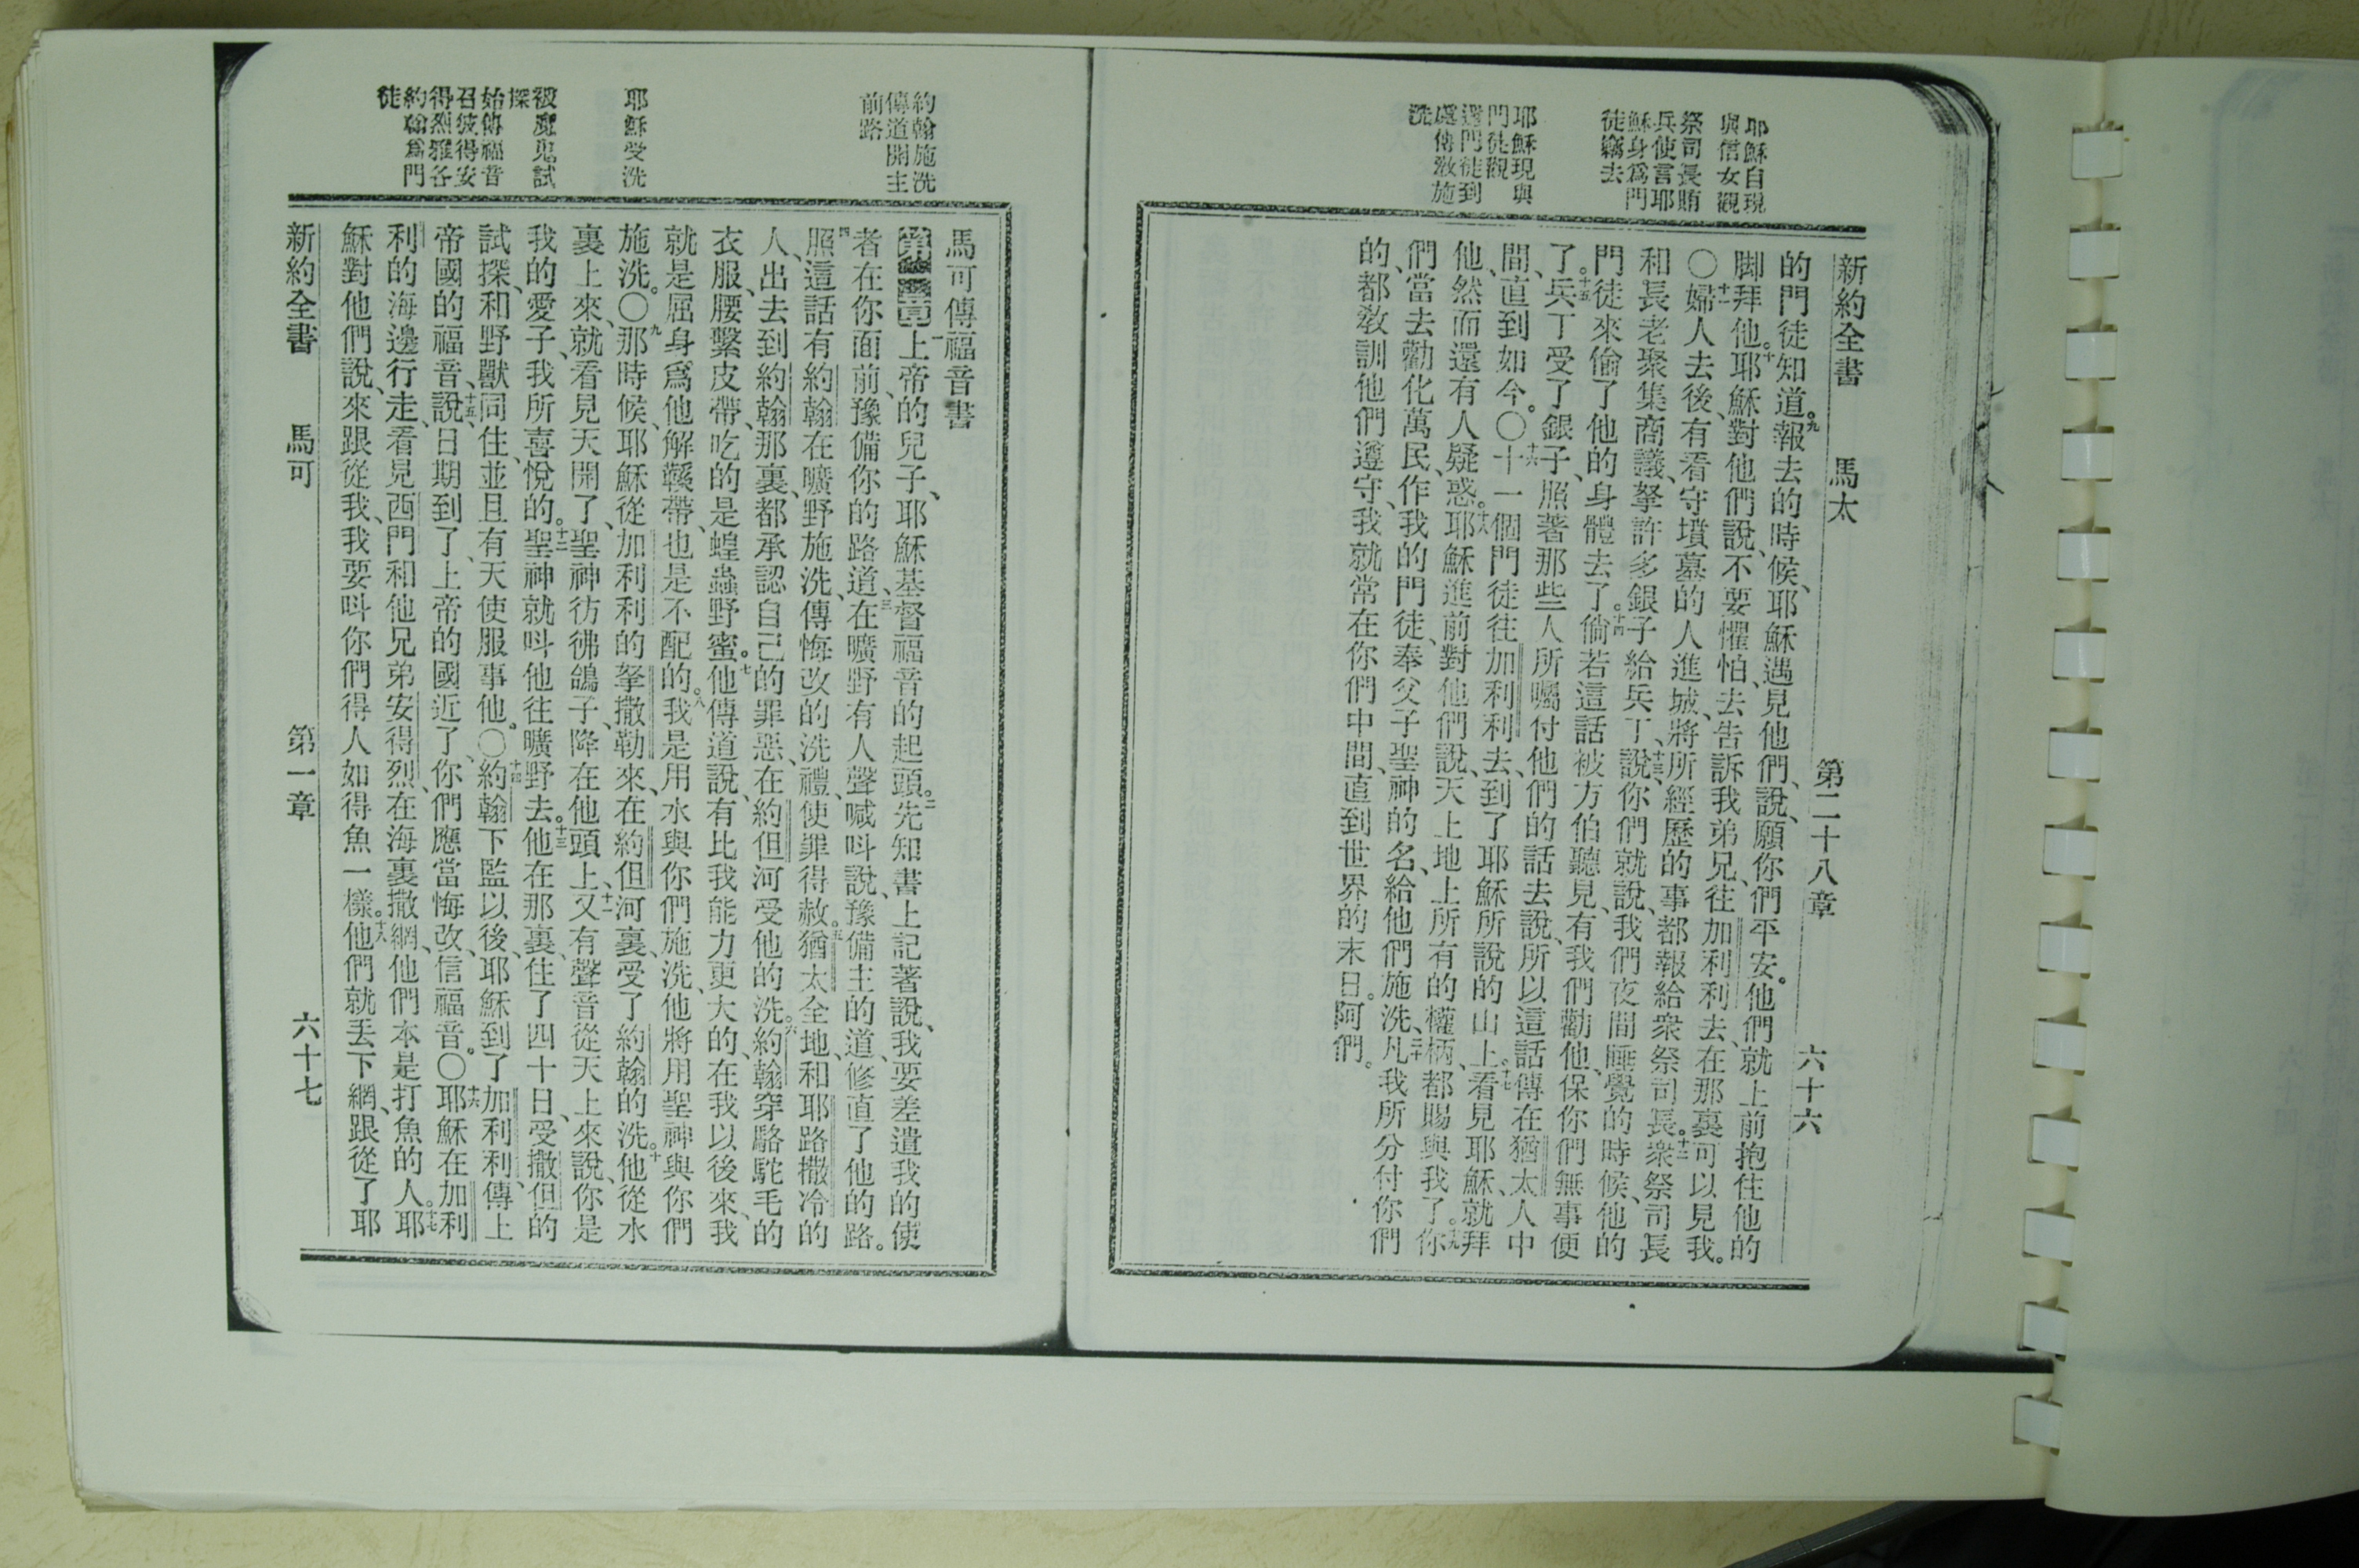 新約全書 馬太 第二十八章 六十六
耶穌自現
與信女觀
祭司長賄
兵使言耶
穌身爲門
徒竊去
耶穌現與
門徒觀
遣門徒到
處傳敎施
洗
的門徒知道。九報去的時候、耶穌遇見他們、說、願你們平安。他們就上前抱住他的
脚拜他。十耶穌對他們說、不要懼怕、去告訴我弟兄、往加利利去、在那裏可以見我。
〇十一婦人去後、有看守墳墓的人進城、將所經歷的事都報給衆祭司長。十二衆祭司長
和長老聚集商議、拏許多銀子給兵丁、十三說、你們就說、我們夜間睡覺的時候、他的
門徒來偷了他的身體去了。十四倘若這話被方伯聽見、有我們勸他、保你們無事便
了。十五兵丁受了銀子、照著那些人所囑付他們的話去說、所以這話傳在猶太人中
間、直到如今。〇十六十一個門徒往加利利去、到了耶穌所說的山上。十七看見耶穌、就拜
他、然而還有人疑惑。十八耶穌進前對他們說、天上地上所有的權柄、都賜與我了。十九你
們當去勸化萬民、作我的門徒、奉父子聖神的名、給他們施洗、二十凡我所分付你們
的、都敎訓他們遵守、我就常在你們中間、直到世界的末日。阿們。
約翰施洗
傳道開主
前路
耶穌受洗
被魔鬼試
探
始傳福音
召彼得安
得烈雅各
約翰爲門
徒
馬可傳福音書
第一章一上帝的兒子、耶穌基督福音的起頭。二先知書上記著說、我要差遣我的使
者在你面前、豫備你的路道、三在曠野有人聲喊呌說、豫備主的道、修直了他的路。
四照這話有約翰在曠野施洗、傳悔改的洗禮、使罪得赦。五猶太全地、和耶路撒冷的
人、出去到約翰那裏、都承認自己的罪惡、在約但河受他的洗。六約翰穿駱駝毛的
衣服、腰繫皮帶、吃的是蝗蟲野蜜。七他傳道說、有比我能力更大的、在我以後來、我
就是屈身爲他解鞵帶、也是不配的。八我是用水與你們施洗、他將用聖神與你們
施洗。〇九那時候、耶穌從加利利的拏撒勒來、在約但河裏、受了約翰的洗。十他從水
裏上來、就看見天開了、聖神彷彿鴿子、降在他頭上、十一又有聲音從天上來說、你是
我的愛子、我所喜悅的。十二聖神就呌他往曠野去。十三他在那裏、住了四十日、受撒但的
試探、和野獸同住、並且有天使服事他。〇十四約翰下監以後、耶穌到了加利利、傳上
帝國的福音、十五說、日期到了、上帝的國近了、你們應當悔改、信福音。〇十六耶穌在加利
利的海邊行走、看見西門和他兄弟安得烈、在海裏撒網、他們本是打魚的人。十七耶
穌對他們說、來跟從我、我要呌你們得人如得魚一樣。十八他們就丟下網、跟從了耶
新約全書 馬可 第一章 六十七